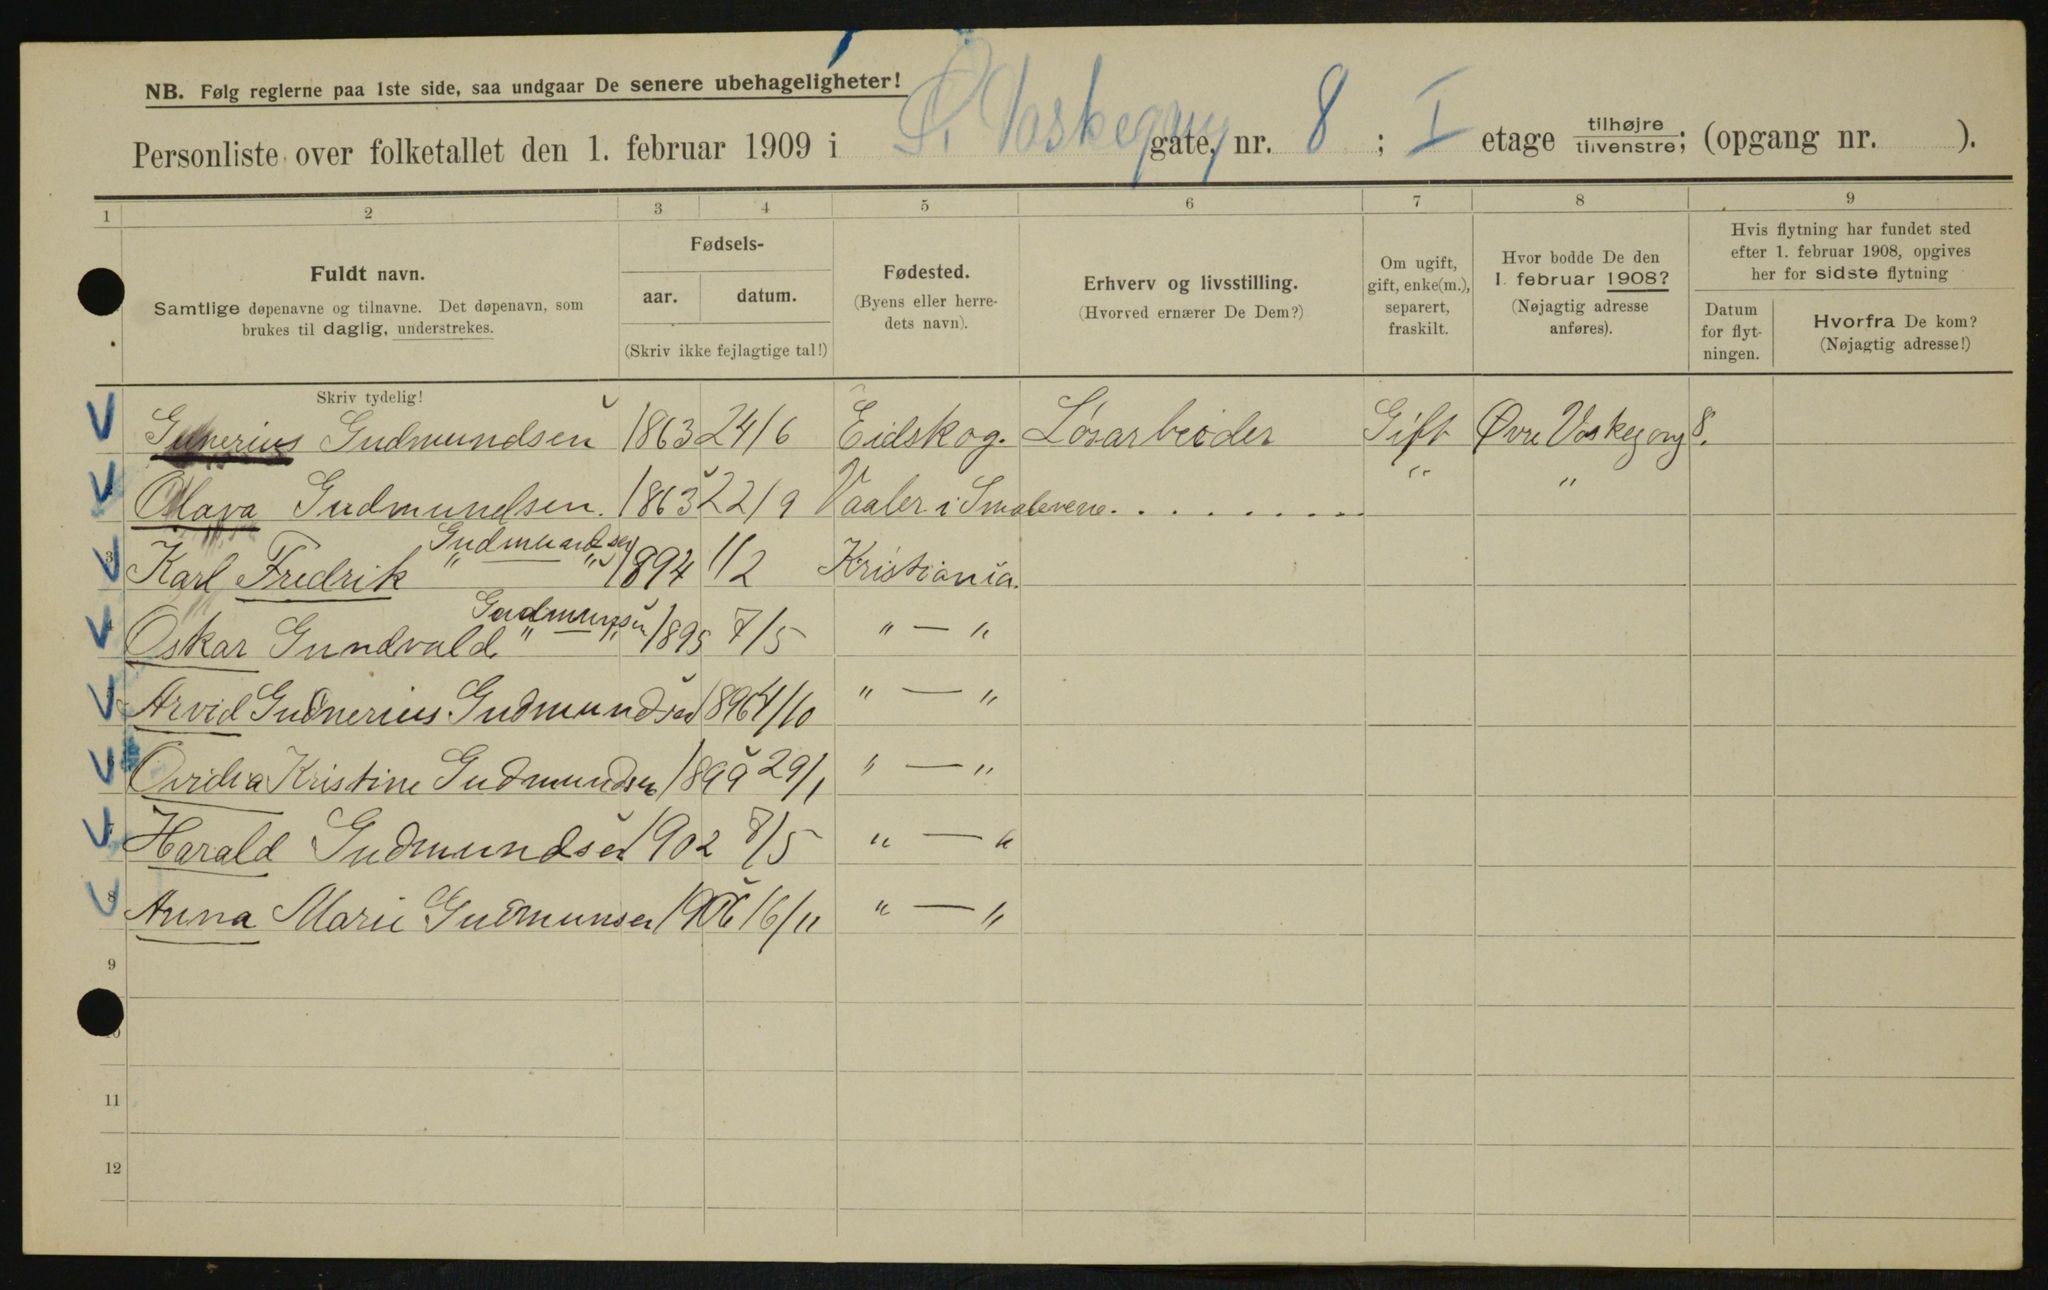 NB. Følg reglerne paa 1ste side, saa undgaar De senere ubehageligheter!
Personliste over folketallet den 1. februar 1909 i Ø. Vaskegang gate, nr. 8 ; I etage tilhøjre tilvenstre; (opgang nr. ).
1 2 3 4 5 6 7 8 9
Fuldt navn.
Samtlige døpenavne og tilnavne. Det døpenavn, som
brukes til daglig, understrekes.
Skriv tydelig!
Fødsels-
aar. datum.
(Skriv ikke fejlagtige tal!)
Fødested.
(Byens eller herre-
dets navn).
Erhverv og livsstilling.
(Hvorved ernærer De Dem?)
Om ugift,
gift, enke(m.),
separert,
fraskilt.
Hvor bodde De den
1. februar 1908?
(Nøjagtig adresse
anføres).
Hvis flytning har fundet sted
efter 1. februar 1908, opgives
her for sidste flytning
Datum
for flyt-
ningen.
Hvorfra De kom?
(Nøjagtig adresse!)
Gunerius Gudmundsen 1863 24/6 Eidskog. Løsarbeider Gift Øvre Vaskegang 8.
Olava Gudmundsen. 1863 22/9 Vaaler i Smaalenene. . . . . . . . . . " "
3 Karl Fredrik Gudmundsen 1894 1/2 Kristiania.
4 Oskar Gundvald Gudmunsen 1895 7/5 " — "
Arvid Gudnerius Gudmundsen 1896 4/10 " — "
6 Ovidia Kristine Gudmundsen 1899 29/1 " — "
7 Harald Gudmundsen 1902 8/5 " — "
8 Anna Marie Gudmunsen 1906 16/11 " — "
9
10
11
12